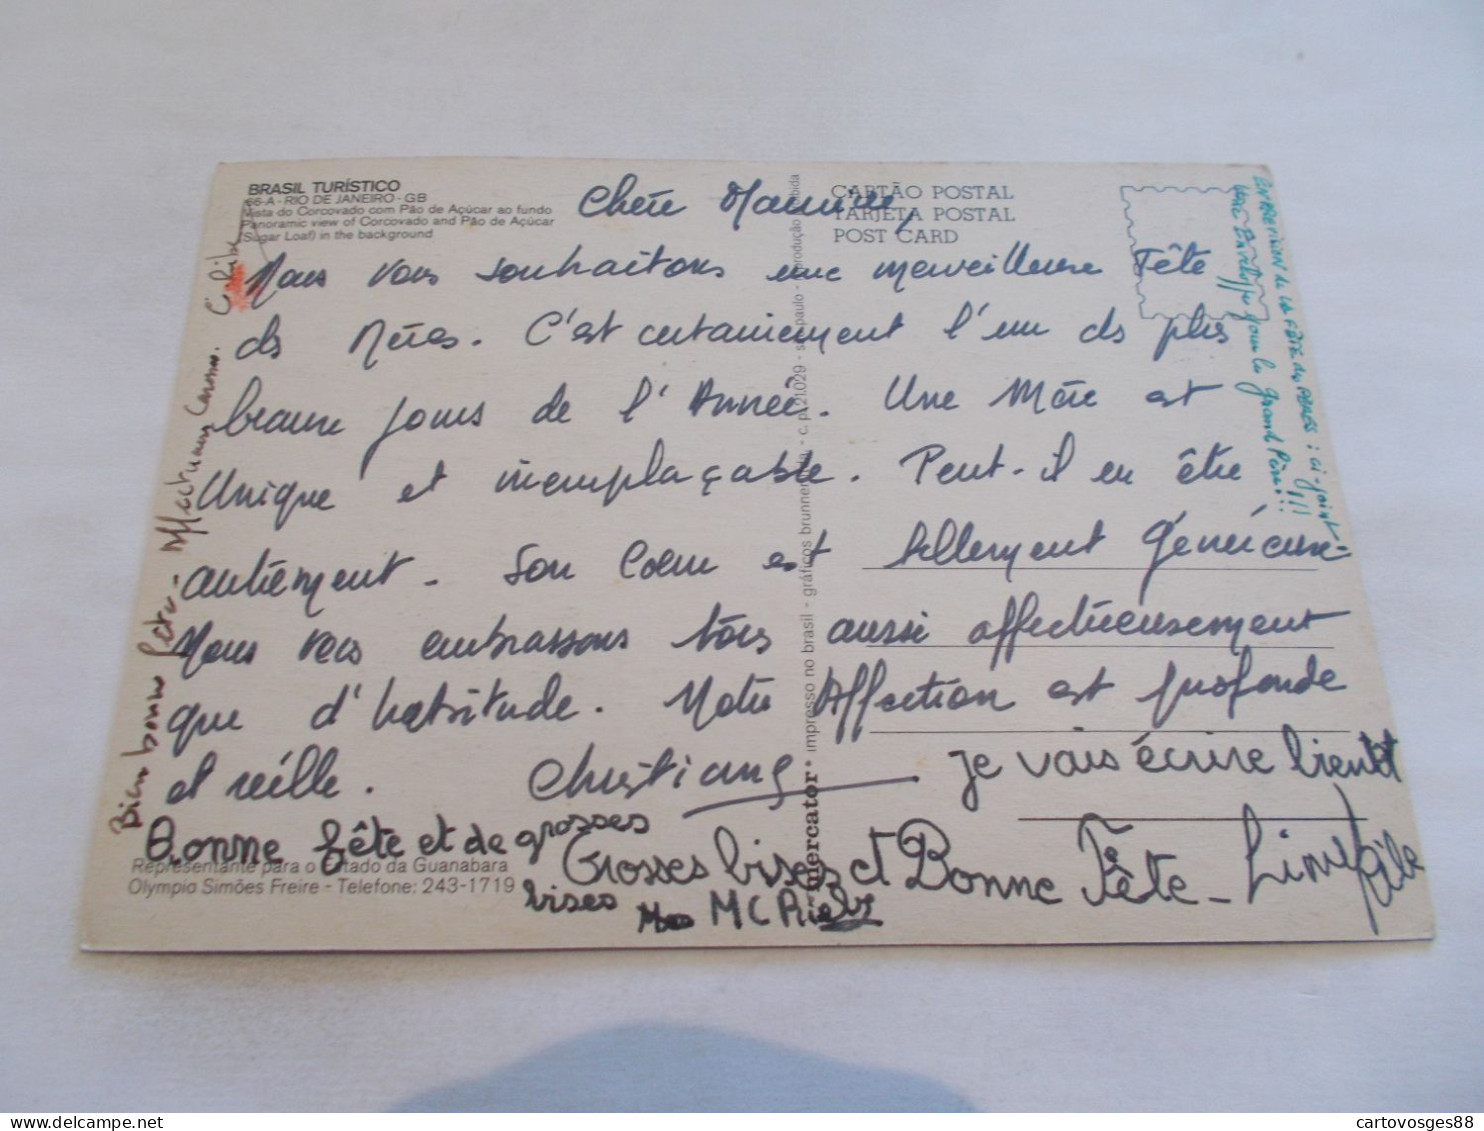 BRASIL TURÍSTICO
66-A - RIO DE JANEIRO - GB
Vista do Corcovado com Pão de Açúcar ao fundo
Panoramic view of Corcovado and Pão de Açúcar
(Sugar Loaf) in the background
CARTÃO POSTAL
TARJETA POSTAL
POST CARD
Chère Mamine,
Nous vous souhaitons une merveilleuse Fête
des Mères. C'est certainement l'un des plus
beaux jours de l'Année. Une Mère est
Unique et inemplaçable. Peut-il en être
autrement. Son Coeur est tellement Généreux
Nous vous embrassons tous aussi affectueusement
que d'habitude. Notre Affection est profonde
et réelle. Christiane
je vais écrire bientôt
Bonne fête et de grosses
bises
Grosses bises et Bonne Fête -
Bien bonne fête - Affectueux
en prévision de la FÊTE des PÈRES : ci-joint
une Enveloppe pour le grand Père !!!
mercator
impresso no brasil - gráficos brunner - c.p. 21.029 - são paulo - reprodução proibida
Representante para o Estado da Guanabara
Olympio Simões Freire - Telefone: 243-1719
cartovosges88